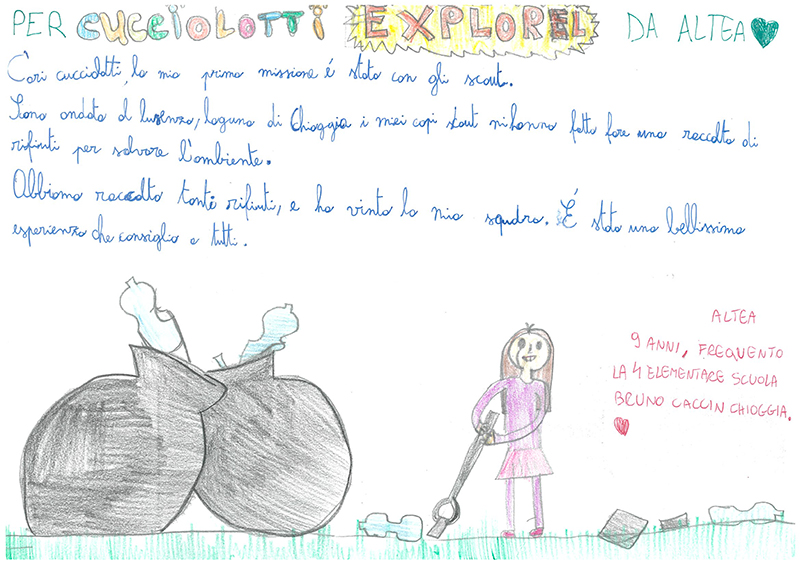 PER CUCCIOLOTTI EXPLORER DA ALTEA
Cari cucciolotti, la mia prima missione é stata con gli scout.
Sono andata al lusenzo, laguna di Chioggia i miei capi scout mi hanno fatto fare una raccolta di
rifiuti per salvare l'ambiente.
Abbiamo raccolto tanti rifiuti, e ha vinto la mia squadra. É stata una bellissima
esperienza che consiglio a tutti.
ALTEA
9 ANNI, FREQUENTO
LA 4 ELEMENTARE SCUOLA
BRUNO CACCIN CHIOGGIA.